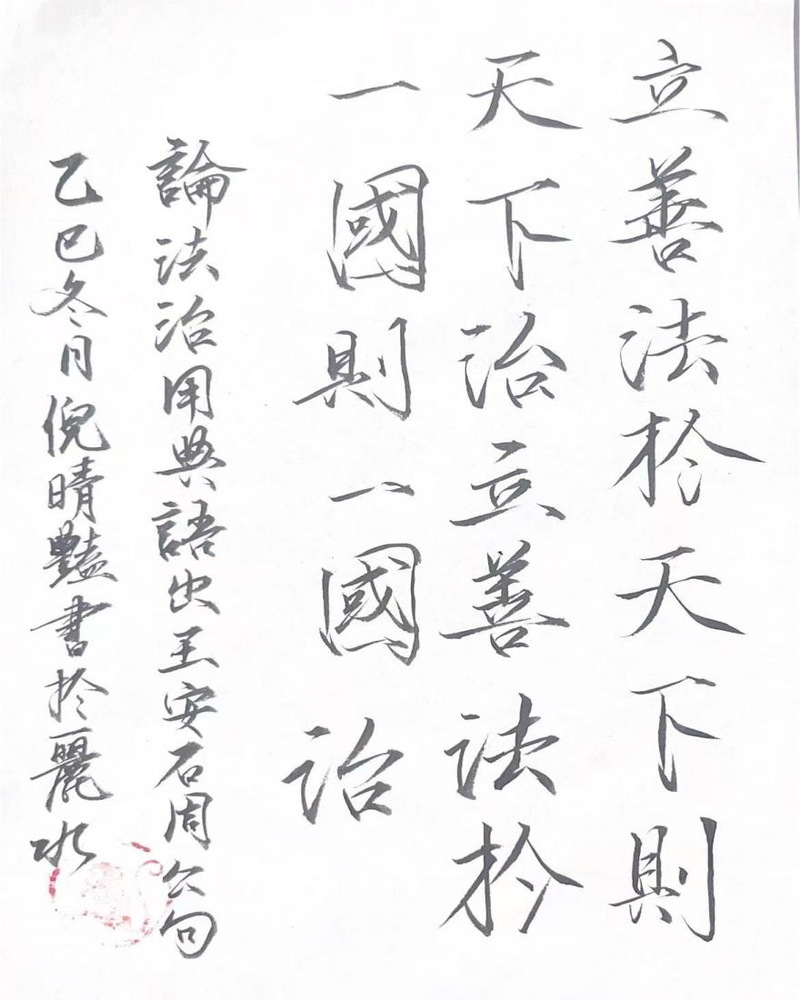 立善法於天下則
天下治立善法於
一國則一國治
論法治用典語出王安石周公句
乙巳冬月倪晴艷書於麗水